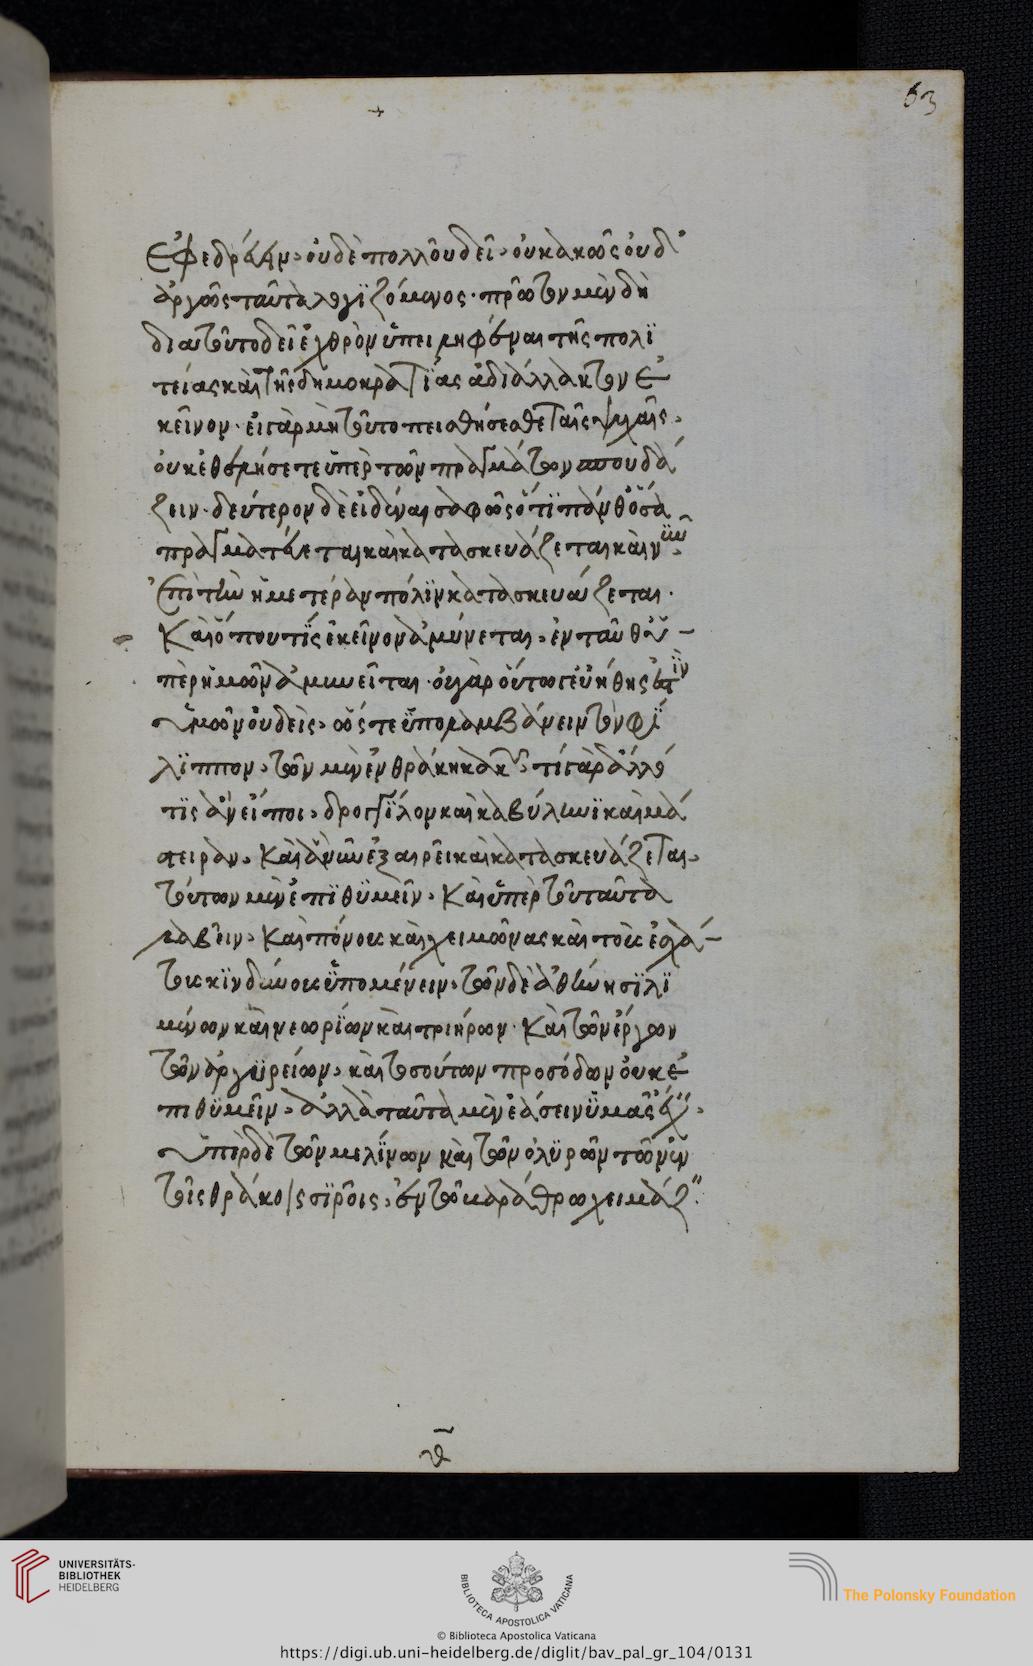 63
ἐφεδρεύων· οὐδὲ πολλοῦ δεῖ· οὐ κακῶς οὐδ᾽
ἀργῶς ταῦτα λογιζόμενος· πρῶτον μὲν δὴ
διὰ τοῦτο δεῖ ἐχθρὸν ὑπειληφέναι τῆς πολι
τείας καὶ τῆς δημοκρατίας ἀδιάλλακτον ἐ
κεῖνον· εἰ γὰρ μὴ τοῦτο πεισθήσεσθε ταῖς ψυχαῖς·
οὐκ ἐθελήσετε ὑπὲρ τῶν πραγμάτων σπουδά
ζειν· δεύτερον δὲ εἰδέναι σαφῶς ὅτι πάνθ᾽ ὅσα
πραγματεύεται καὶ κατασκευάζεται καὶ νῦν·
ἐπὶ τὴν ἡμετέραν πόλιν κατασκευάζεται·
Καὶ ὅπου τις ἐκεῖνον ἀμύνεται· ἐνταῦθ᾽ ὑ
πὲρ ἡμῶν ἀμυνεῖται· οὐ γὰρ οὕτως εὐήθης ἐστὶν
ὑμῶν οὐδεὶς· ὥστε ὑπολαμβάνειν τὸν φί
λιππον· τῶν μὲν ἐν θράκῃ κακῶν· τί γὰρ ἄλλό
τις ἂν εἴποι· δρογγίλον καὶ καβύλην καὶ μά
στειραν· Καὶ ἃ νῦν ἐξαιρεῖ καὶ κατασκευάζεται·
τούτων μὲν ἐπιθυμεῖν· Καὶ ὑπὲρ τοῦ ταῦτα
λαβεῖν· Καὶ πόνους καὶ χειμῶνας καὶ τοὺς ἐσχά
τους κινδύνους ὑπομένειν· τῶν δὲ ἀθήνησι λι
μένων καὶ νεωρίων καὶ τριήρων· Καὶ τῶν ἔργων
τῶν ἀργυρείων· καὶ τοσούτων προσόδων οὐκ ἐ
πιθυμεῖν· ἀλλὰ ταῦτα μὲν ἐάσειν ὑμᾶς ἔχειν·
ὑπὲρ δὲ τῶν μελινῶν καὶ τῶν ὀλυρῶν τῶν ἐν
τοῖς θρακίοις σιροῖς· ἐν τῷ βαράθρῳ χειμάζ
θ
UNIVERSITÄTS-
BIBLIOTHEK
HEIDELBERG
BIBLIOTECA APOSTOLICA VATICANA
© Biblioteca Apostolica Vaticana
The Polonsky Foundation
https://digi.ub.uni-heidelberg.de/diglit/bav_pal_gr_104/0131